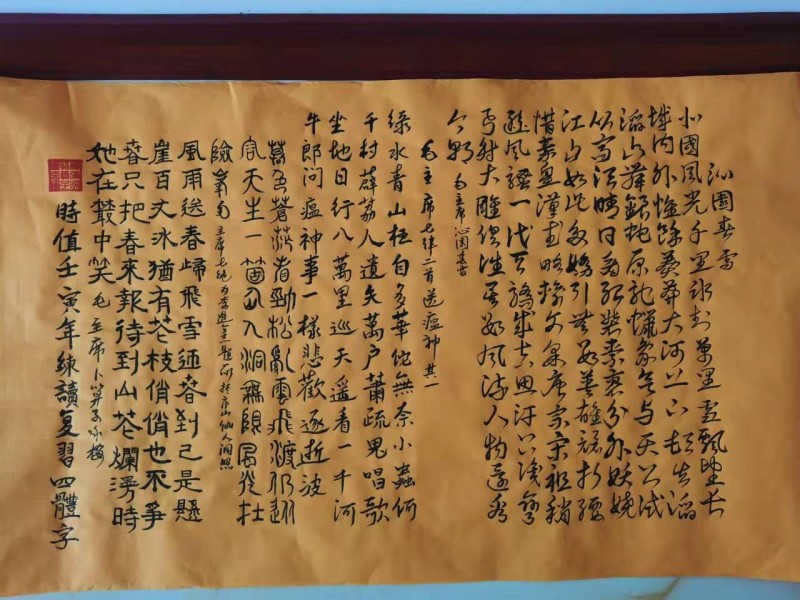 沁園春雪
北國風光千里冰封萬里雪飄望长
城内外惟餘莽莽大河上下頓失滔
滔山舞銀蛇原馳蠟象欲与天公試
比高須晴日看紅裝素裹分外妖嬈
江山如此多嬌引無數英雄競折腰
惜秦皇漢武略輸文采唐宗宋祖稍
遜風騷一代天驕成吉思汗只識彎
弓射大雕俱往矣數风流人物還看
今朝 毛主席沁園春雪
毛主席七律二首送瘟神其一
綠水青山枉自多華佗無奈小蟲何
千村薜荔人遺矢萬户蕭疏鬼唱歌
坐地日行八萬里巡天遥看一千河
牛郎問瘟神事一樣悲歡逐逝波
暮色蒼茫看勁松亂雲飛渡仍從
容天生一箇仙人洞無限風光在
險峯 毛主席七绝为李進題所拍庐山仙人洞照
風雨送春歸飛雪迎春到已是懸
崖百丈冰猶有花枝俏俏也不爭
春只把春來報待到山花爛漫時
她在叢中笑 毛主席卜算子咏梅
時值壬寅年練讀复習四體字